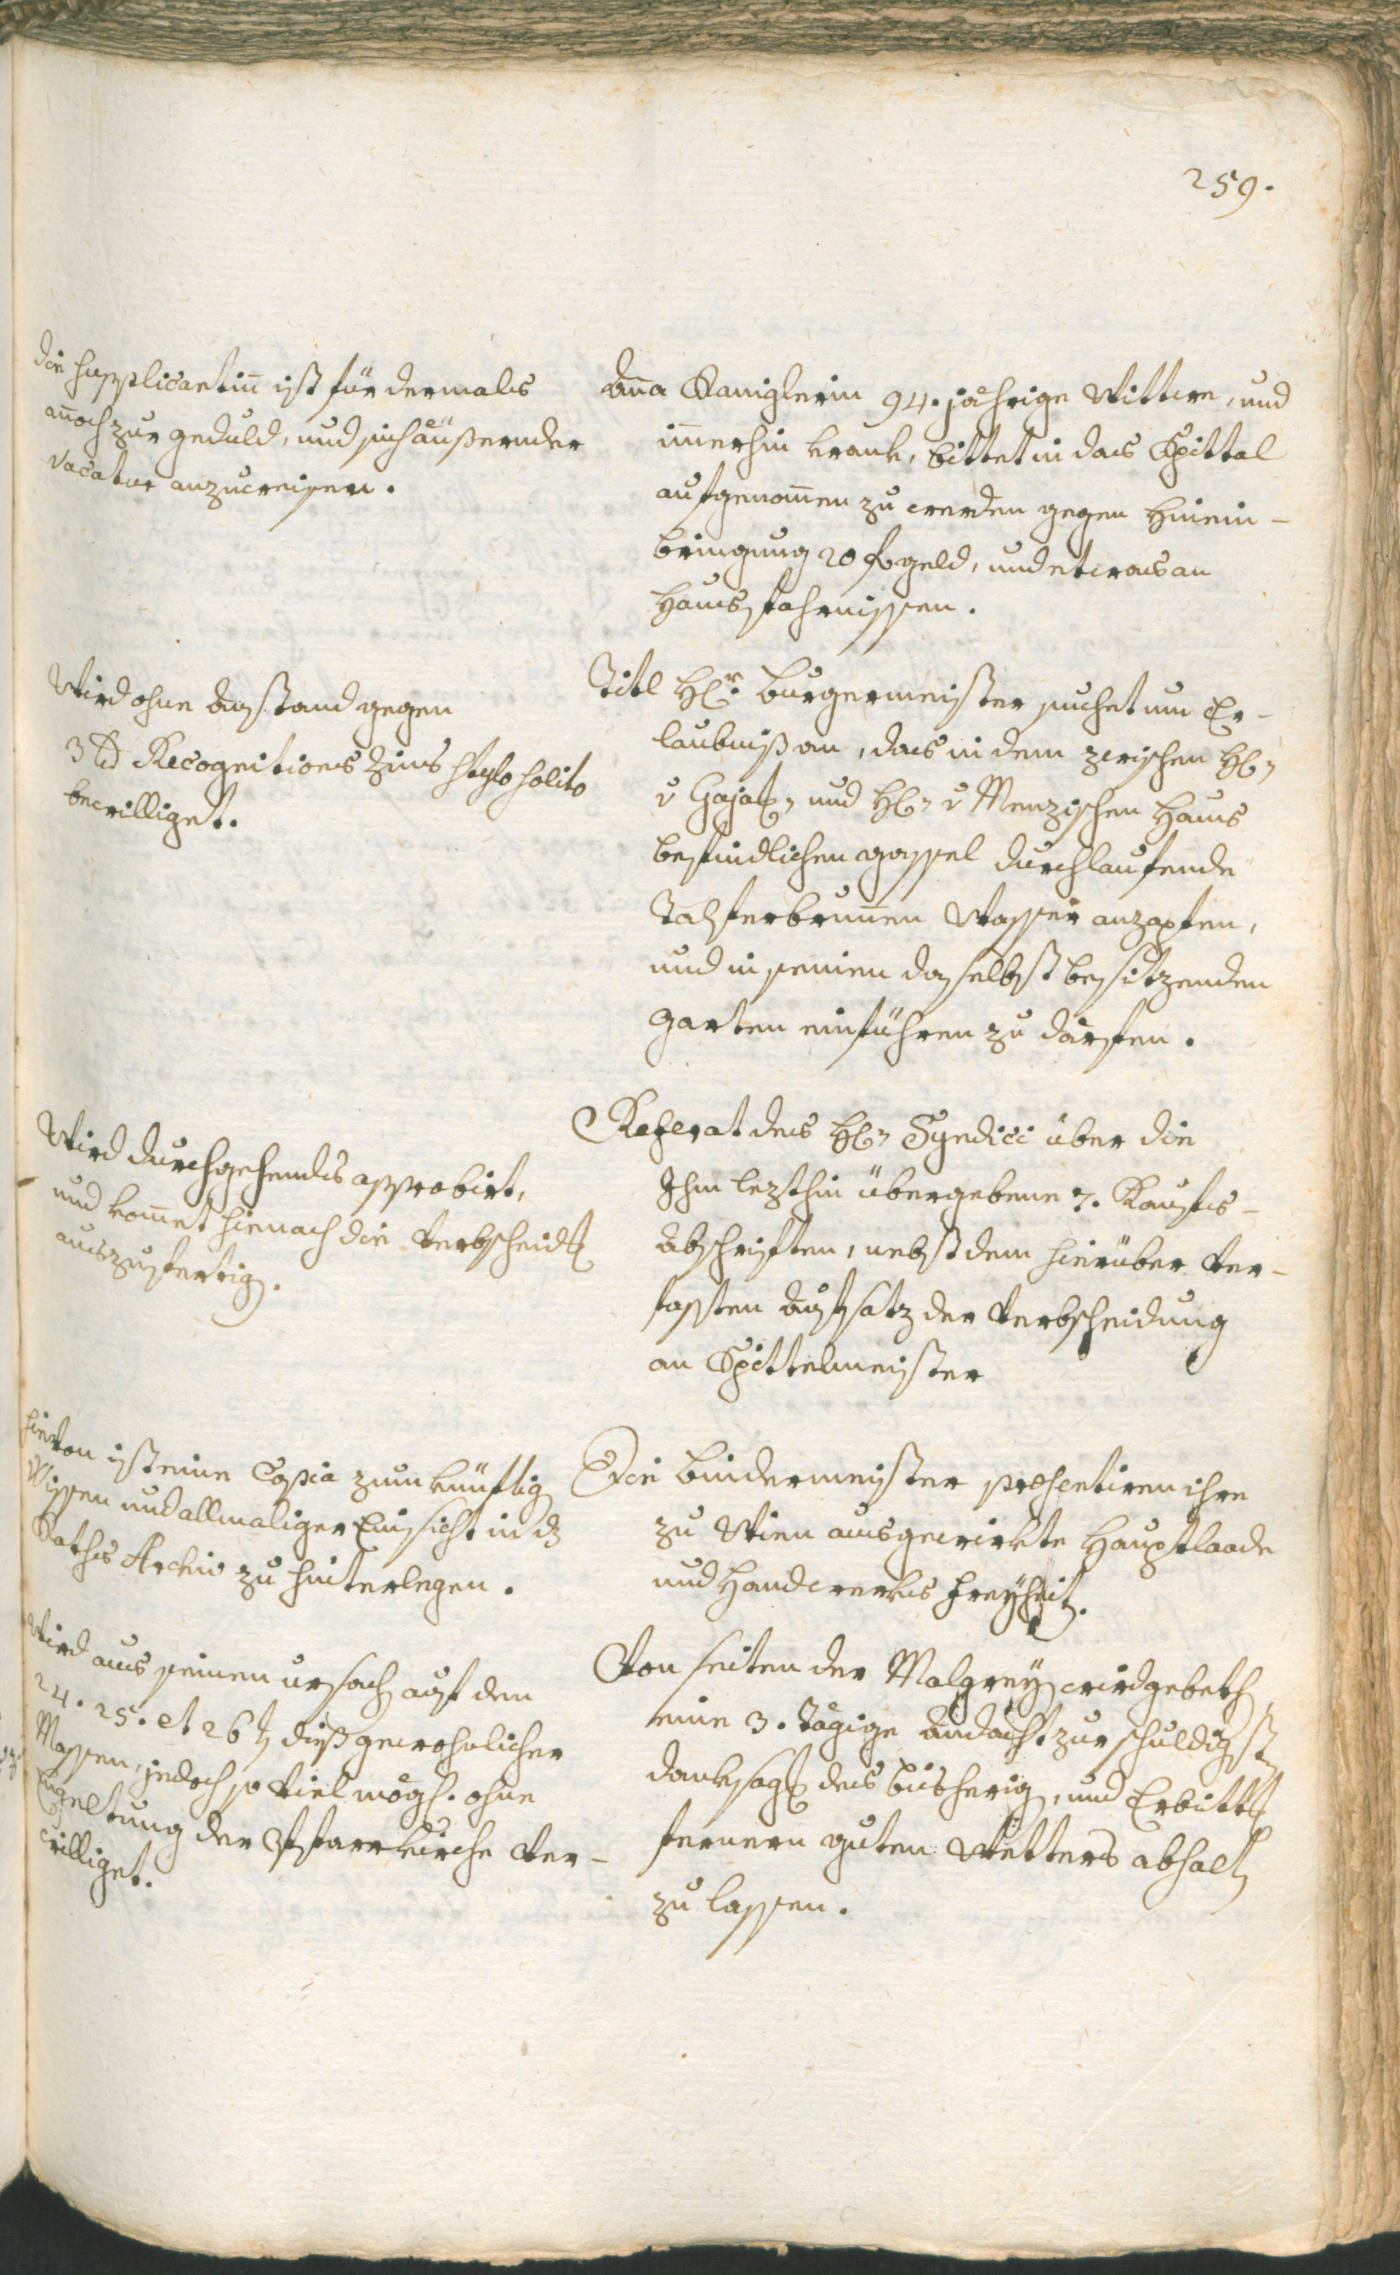 259.
die supplicantin ist für dermals
anoch zur geduld, und sich äüßernder
vacatur anzuweisen.
Ana Kaniglerin 94. jährige Wittwe, und
imerhin krank, bittet in das Spittal
aufgenomen zu werden gegen hinein-
bringung 20 f geld, und etwas an
hausfahrnissen.
Wird ohne Anstand gegen
3 Recognitions Zins stylo solito
bewilliget.
Titl H. burgermeister suchet um Er-
laubniß an, das in dem zwischen H.
v Gajat, und H. v Menzischen Haus
befindlichen gassel durchlaufende
Talferbrunnen Wasser anzapfen,
und in seinen daselbst besitzenden
garten einführen zu därfen.
Wird durchgehends approbirt,
und komet hienach die Verbscheid
auszufertig.
Referat des H. Syndici über die
Ihm lezthin übergebene 7. Kaufs-
abschriften, nebst dem hierüber ver-
fassten Aufsatz der Verbscheidung
an Spittelmeister
hievon ist eine Copia zum künftig
Wissen und allmaliger Einsicht in dz
Raths Archiv zu hinterlegen.
Die bindermeister presentiren ihre
zu Wien ausgewirkte Hauptlaade
und Handwerks freyheit.
Wird aus seinen ursach auf den
24. 25. et 26t dieß gewohnlicher
Massen, jedoch so viel mögl. ohne
Engeltung der Pfarrkirche ver-
williget.
Von seiten der Malgrey wird gebeth
eine 3. Tägige Andacht zur schuldigst
danksag des bisherig, und Erbitt
fernern guten Wetters abhalt
zu lassen.